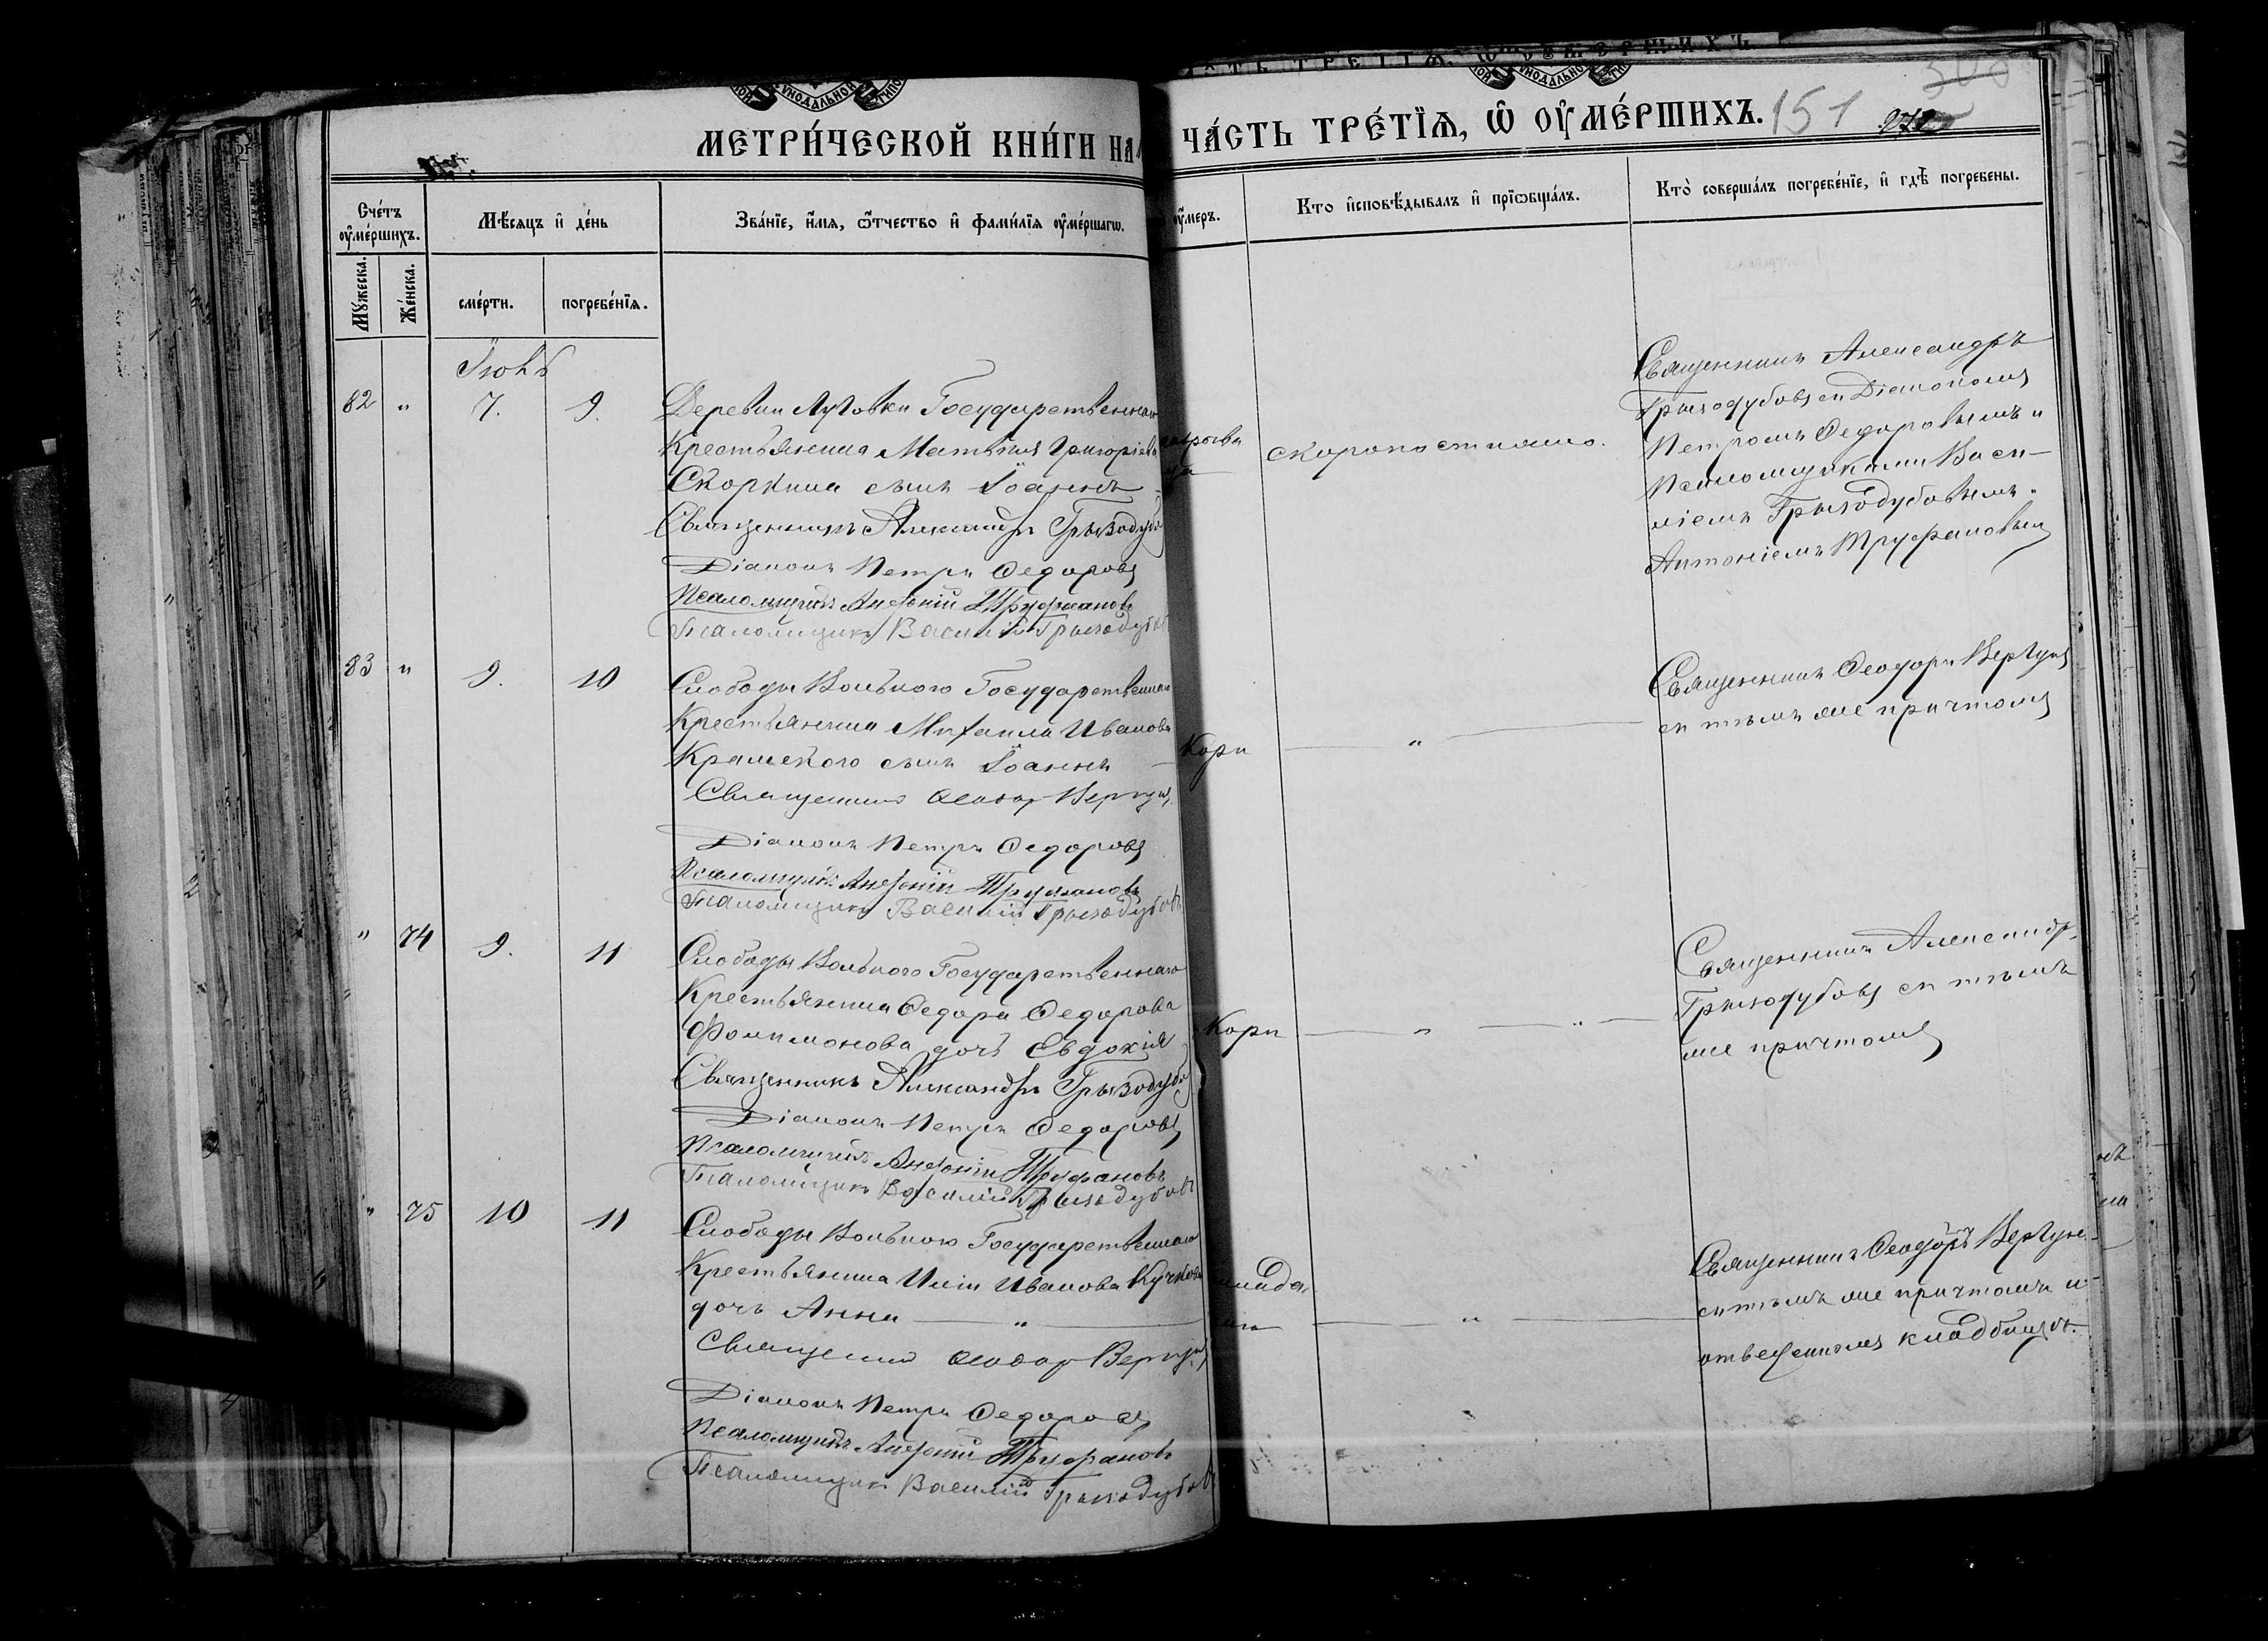 МЕТРИ́ЧЕСКОЙ КНИ́ГИ НА
ЧА́СТЬ ТРЕ́ТЇѦ, Ѿ ОУ҆МЕ́РШИХЪ. 151
Сче́тъ оу҆ме́ршихъ.
Мꙋ́жеска.
Же́нска.
Мѣ́сяцъ и҆ де́нь
сме́рти.
погребе́нїѧ.
Зва́нїе, и҆́мѧ, ѻ҆́тчество и҆ фами́лїѧ оу҆ме́ршагѡ.
оу҆́меръ.
Кто и҆сповѣ́дывалъ и҆ прїѡбща́лъ.
Кто̀ соверша́лъ погребе́нїе, и҆ гдѣ̀ погребены.
Іюнь
82 " 7. 9.
Деревни Луговки Государственнаго
Крестьянина Матвѣя Григоріева
Скоркина сынъ Іоаннъ
скоропостижно.
Священникъ Александръ Грызодубовъ
Діаконъ Петръ Федоровъ
Псаломщикъ Антоній Труфановъ
Псаломщикъ Василій Грызодубовъ
Священникъ Александръ
Грызодубовъ съ Діакономъ
Петромъ Федоровымъ и
Псаломщиками Васи-
ліемъ Грызодубовымъ и
Антоніемъ Труфановымъ
83 " 9. 10
Слободы Вольного Государственнаго
Крестьянина Михаила Иванова
Крамского сынъ Іоаннъ
Кори "
Священникъ Ѳеодоръ Вергунъ
Діаконъ Петръ Федоровъ
Псаломщикъ Антоній Труфановъ
Псаломщикъ Василій Грызодубовъ
Священникъ Ѳеодоръ Вергунъ
съ тѣмъ же причтомъ
" 74 9. 11
Слободы Вольного Государственнаго
Крестьянина Федора Федорова
Филимонова дочь Евдокія
Кори " "
Священникъ Александръ Грызодубовъ
Діаконъ Петръ Федоровъ
Псаломщикъ Антоній Труфановъ
Псаломщикъ Василій Грызодубовъ
Священникъ Александръ
Грызодубовъ съ тѣмъ
же причтомъ
" 75 10 11
Слободы Вольного Государственнаго
Крестьянина Иліи Иванова
дочь Анна "
"
Священникъ Ѳеодоръ Вергунъ
Діаконъ Петръ Федоровъ
Псаломщикъ Антоній Труфановъ
Псаломщикъ Василій Грызодубовъ
Священникъ Ѳеодоръ Вергунъ
съ тѣмъ же причтомъ
кладбищѣ.